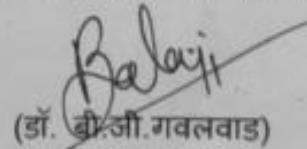 Balaji
(डॉ. बी.जी.गवलवाड)